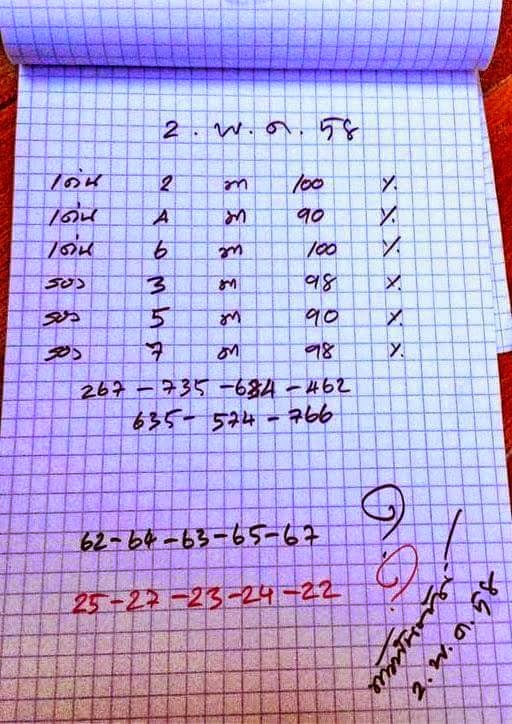 2 . พ . ค . 58
เด่น 2 มา 100 %
เด่น 4 มา 90 %
เด่น 6 มา 100 %
รอง 3 มา 98 %
รอง 5 มา 90 %
รอง 7 มา 98 %
267 - 735 - 684 - 462
635 - 574 - 766
62 - 64 - 63 - 65 - 67
25 - 27 - 23 - 24 - 22
2 . พ . ค . 58